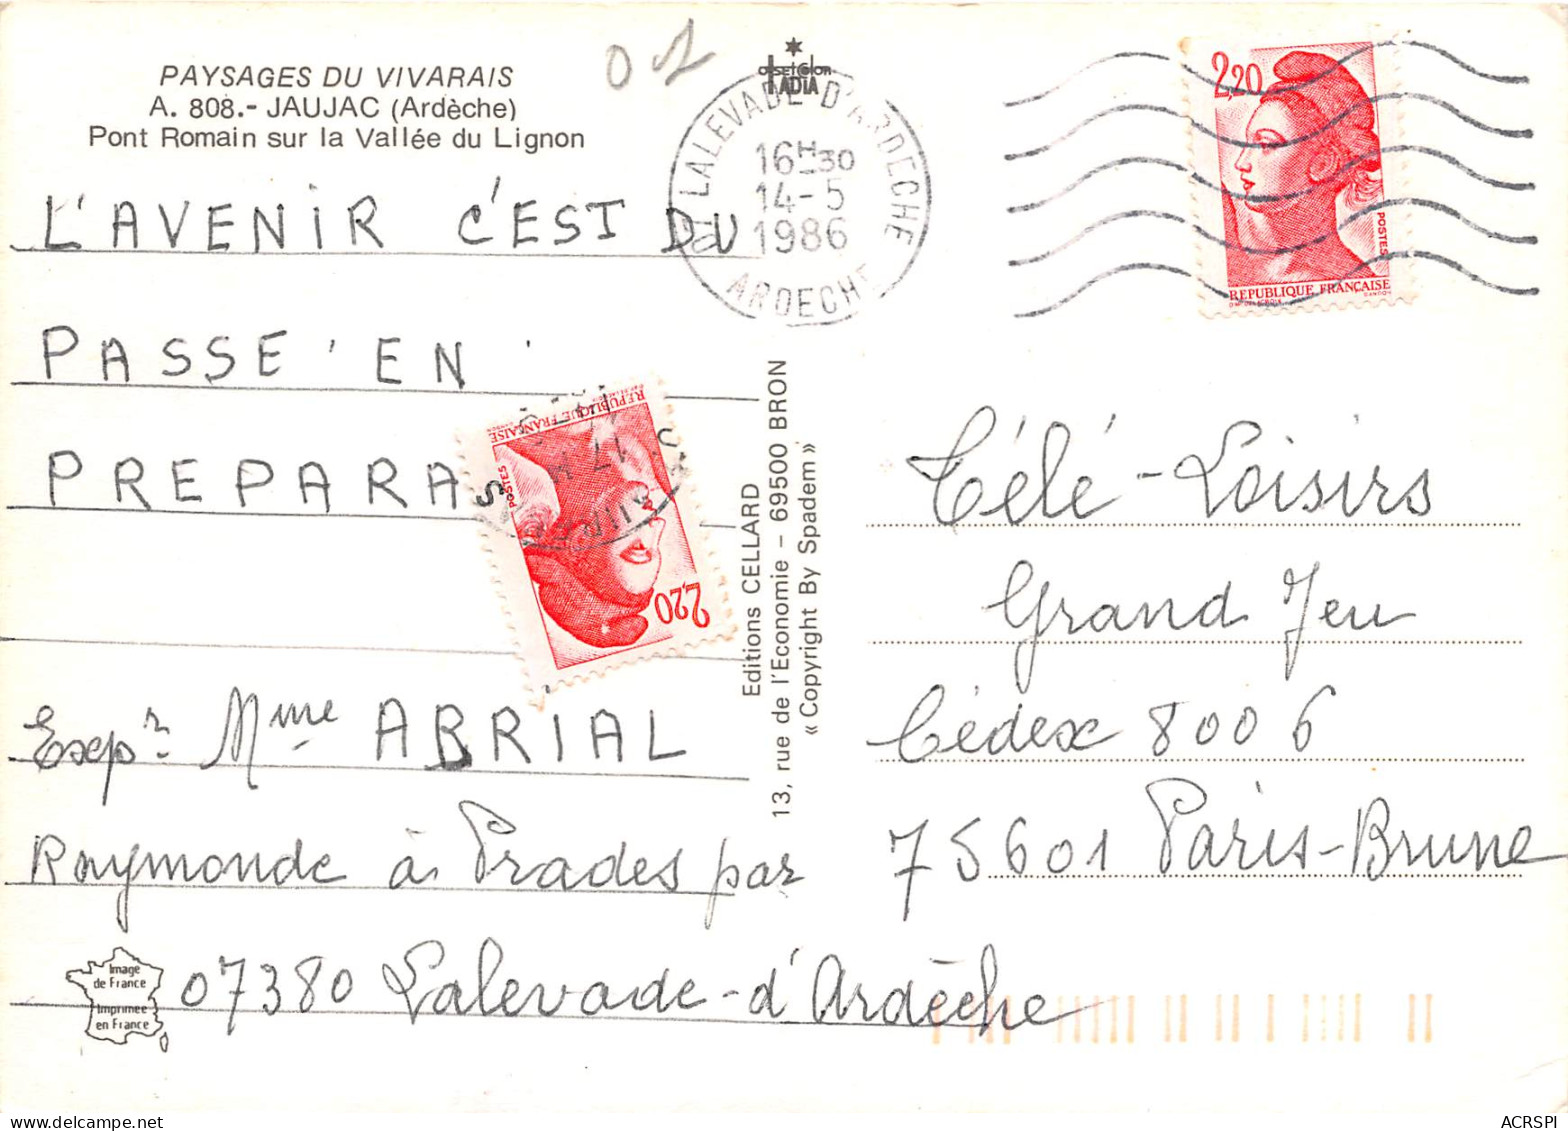 PAYSAGES DU VIVARAIS
A. 808.- JAUJAC (Ardèche)
Pont Romain sur la Vallée du Lignon
L'AVENIR C'EST DU
PASSE' EN
PREPARA
Expr Mme ABRIAL
Raymonde à Prades par
07380 Lalevade-d'Ardèche
Image
de France
Imprimée
en France
07 LALEVADE D'ARDECHE
16H30
14-5
1986
ARDECHE
2,20
POSTES
REPUBLIQUE FRANÇAISE
REPUBLIQUE FRANÇAISE
POSTES
2,20
Editions CELLARD
13, rue de l'Economie – 69500 BRON
« Copyright By Spadem »
Télé-Loisirs
Grand Jeu
Cédex 8006
75601 Paris-Brune
ACRSPI